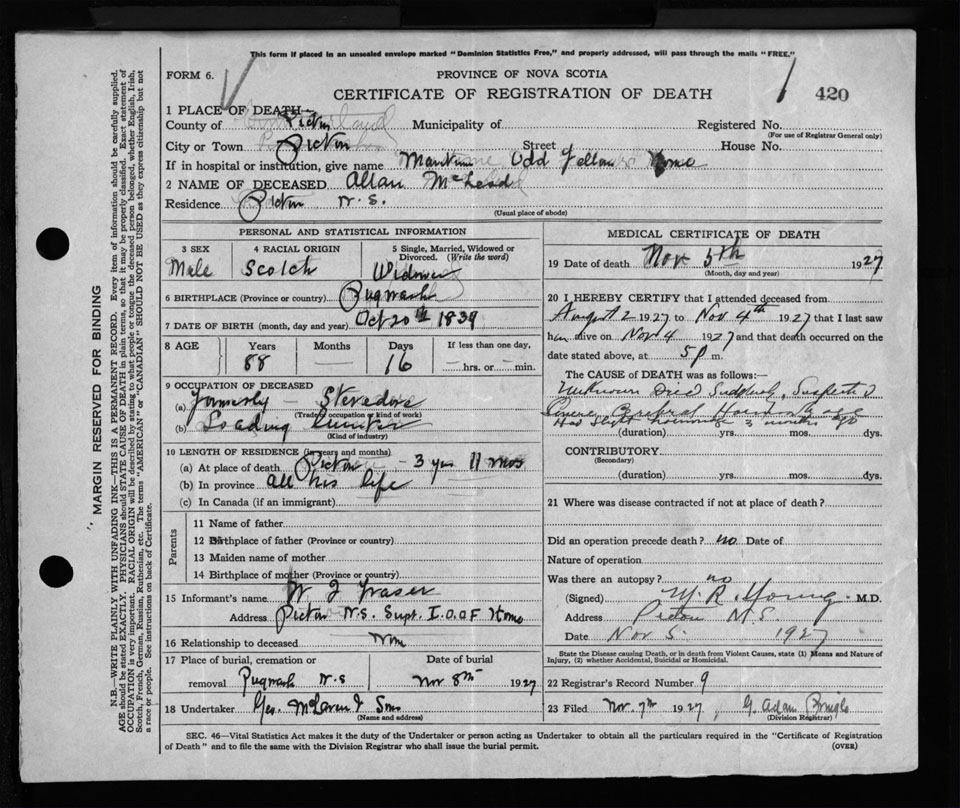 This form if placed in an unsealed envelope marked "Dominion Statistics Free," and properly addressed, will pass through the mails "FREE."
FORM 6.
PROVINCE OF NOVA SCOTIA
CERTIFICATE OF REGISTRATION OF DEATH
420
1 PLACE OF DEATH—
County of Pictou Municipality of Registered No.
(For use of Registrar General only)
City or Town Pictou Street House No.
If in hospital or institution, give name Maritime Odd Fellows Home
2 NAME OF DECEASED Allan McLeod
Residence Pictou N.S.
(Usual place of abode)
PERSONAL AND STATISTICAL INFORMATION
3 SEX 4 RACIAL ORIGIN 5 Single, Married, Widowed or Divorced. (Write the word)
Male Scotch Widower
6 BIRTHPLACE (Province or country) Pugwash
7 DATE OF BIRTH (month, day and year) Oct 20th 1839
8 AGE Years Months Days If less than one day,
88 — 16 hrs. or min.
9 OCCUPATION OF DECEASED
(a) Formerly – Stevedore
(Trade, occupation or kind of work)
(b) Loading lumber
(Kind of industry)
10 LENGTH OF RESIDENCE (in years and months)
(a) At place of death Pictou – 3 yrs 11 mos
(b) In province all his life
(c) In Canada (if an immigrant)
Parents
11 Name of father
12 Birthplace of father (Province or country)
13 Maiden name of mother
14 Birthplace of mother (Province or country)
15 Informant's name Fraser
Address Pictou N.S. Supt. I.O.O.F Home
16 Relationship to deceased
17 Place of burial, cremation or removal Pugwash N.S
Date of burial Nov 8th 1927
18 Undertaker Geo. McLaren & Sons
(Name and address)
MEDICAL CERTIFICATE OF DEATH
19 Date of death Nov 5th 1927
(Month, day and year)
20 I HEREBY CERTIFY that I attended deceased from
August 2 1927 to Nov 4th 1927 that I last saw
him alive on Nov 4 1927 and that death occurred on the
date stated above, at 5 p m.
The CAUSE OF DEATH was as follows:—
Unknown Died Suddenly, Suspected
Cerebral Hemorrhage
Had slight hemorrhage 3 months ago
(duration) yrs. mos. dys.
CONTRIBUTORY
(Secondary)
(duration) yrs. mos. dys.
21 Where was disease contracted if not at place of death?
Did an operation precede death? no Date of
Nature of operation
Was there an autopsy? no
(Signed) M. R. Young M.D.
Address Pictou N.S.
Date Nov 5 1927
State the Disease causing Death, or in death from Violent Causes, state (1) Means and Nature of Injury, (2) whether Accidental, Suicidal or Homicidal.
22 Registrar's Record Number 9
23 Filed Nov. 7th 1927 G. Adam
(Division Registrar)
SEC. 46—Vital Statistics Act makes it the duty of the Undertaker or person acting as Undertaker to obtain all the particulars required in the "Certificate of Registration
of Death" and to file the same with the Division Registrar who shall issue the burial permit.
(OVER)
MARGIN RESERVED FOR BINDING
N.B.—WRITE PLAINLY WITH UNFADING INK—THIS IS A PERMANENT RECORD. Every item of information should be carefully supplied.
AGE should be stated EXACTLY. PHYSICIANS should STATE CAUSE OF DEATH in plain terms, so that it may be properly classified. Exact statement of
OCCUPATION is very important. RACIAL ORIGIN will be described by stating to what people or tongue the deceased person belonged, whether English, Irish,
Scotch, French, German, Russian, Ruthenian, etc. The terms "AMERICAN" or "CANADIAN" SHOULD NOT BE USED as they express citizenship but not
a race or people. See instructions on back of Certificate.